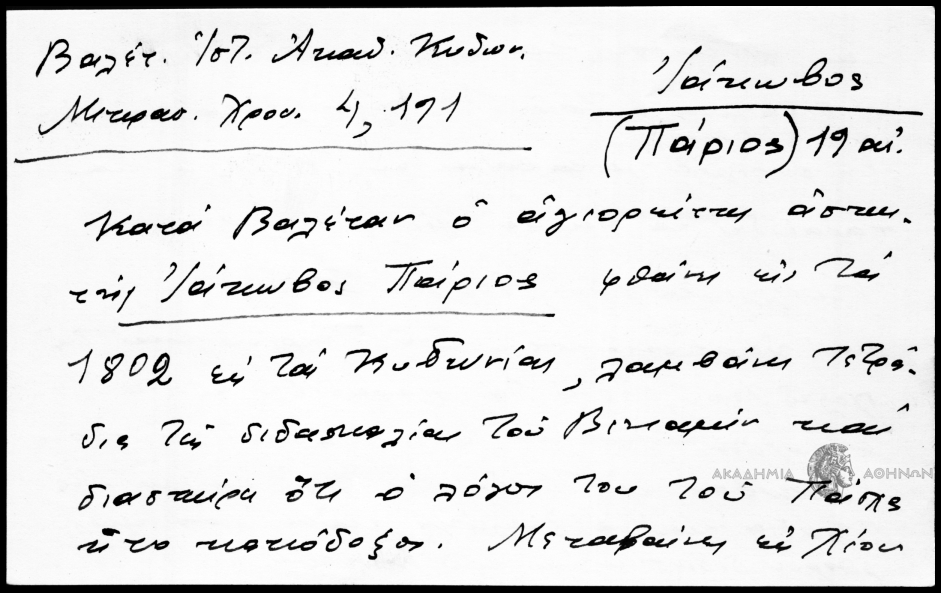 Βαλέτ. Ἱστ. Ἀκαδ. Κυδων.
Μικρασ. Χρον. 4, 191
Ἰάκωβος
(Πάριος) 19 αἰ.
Κατά Βαλέταν ὁ ἁγιορείτης ἀσκη-
τής Ἰάκωβος Πάριος φθάνει εἰς τάς
1802 εἰς τάς Κυδωνίας, λαμβάνει τετρά-
δια τῆς διδασκαλίας τοῦ Βενιαμίν καί
διασπείρει ὅτι ὁ λόγος του τοῦ Πάσχα
ἦτο κακόδοξος. Μεταβαίνει εἰς Χίον
ΑΚΑΔΗΜΙΑ ΑΘΗΝΩΝ